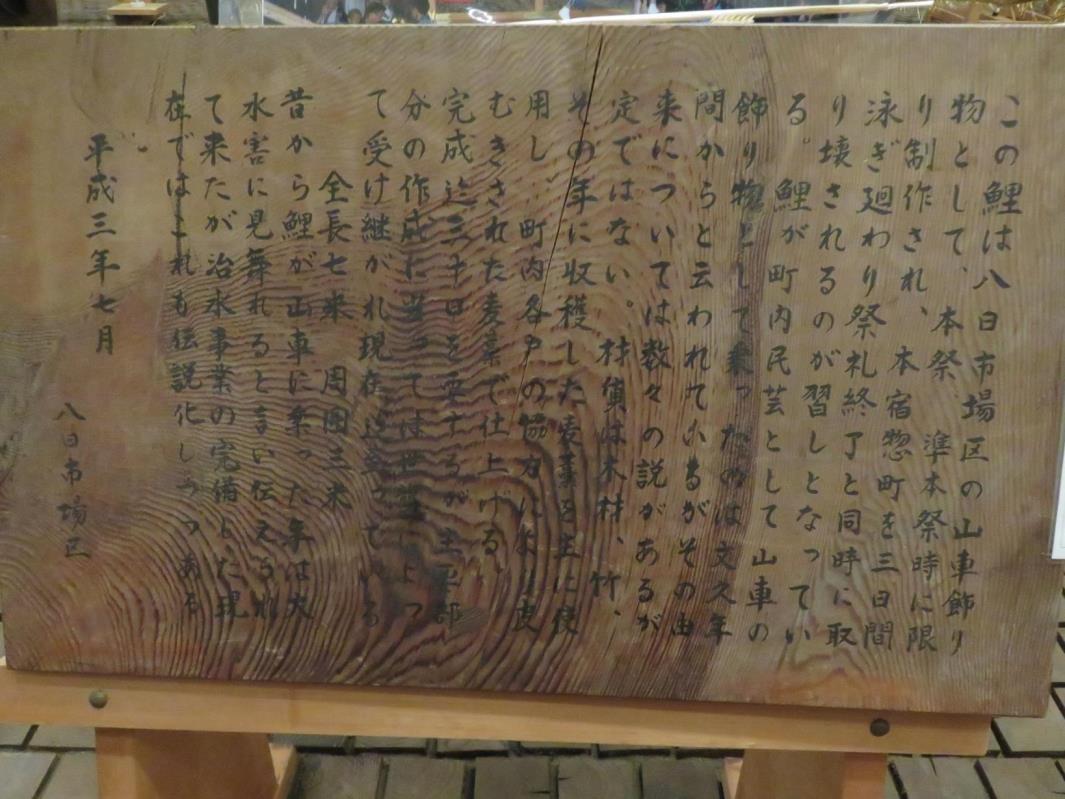 この鯉は八日市場区の山車飾り
物として、本祭、準本祭時に限
り制作され、本宿惣町を三日間
泳ぎ廻わり祭礼終了と同時に取
り壊されるのが習しとなってい
る。鯉が町内民芸として山車の
飾り物として乗ったのは文久年
間からと云われているがその由
来については数々の説があるが
定ではない。材質は木材、竹、
その年に収穫した麦藁を主に使
用し、町内各戸の協力により皮
むきされた麦藁で仕上げる
完成迄三十日を要するが主要部
分の作成に当っては世襲によっ
て受け継がれ現在に至っている
全長七米 周囲三米
昔から鯉が山車に乗った年は大
水害に見舞れると言い伝えられ
て来たが治水事業の完備した現
在ではこれも伝説化しつつある
。
平成三年七月
八日市場区